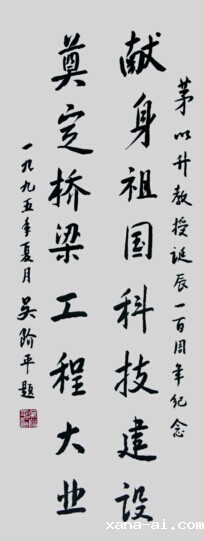 茅以升教授诞辰一百周年纪念
献身祖国科技建设
奠定桥梁工程大业
一九九五年夏月 吴阶平题
xana-ai.com